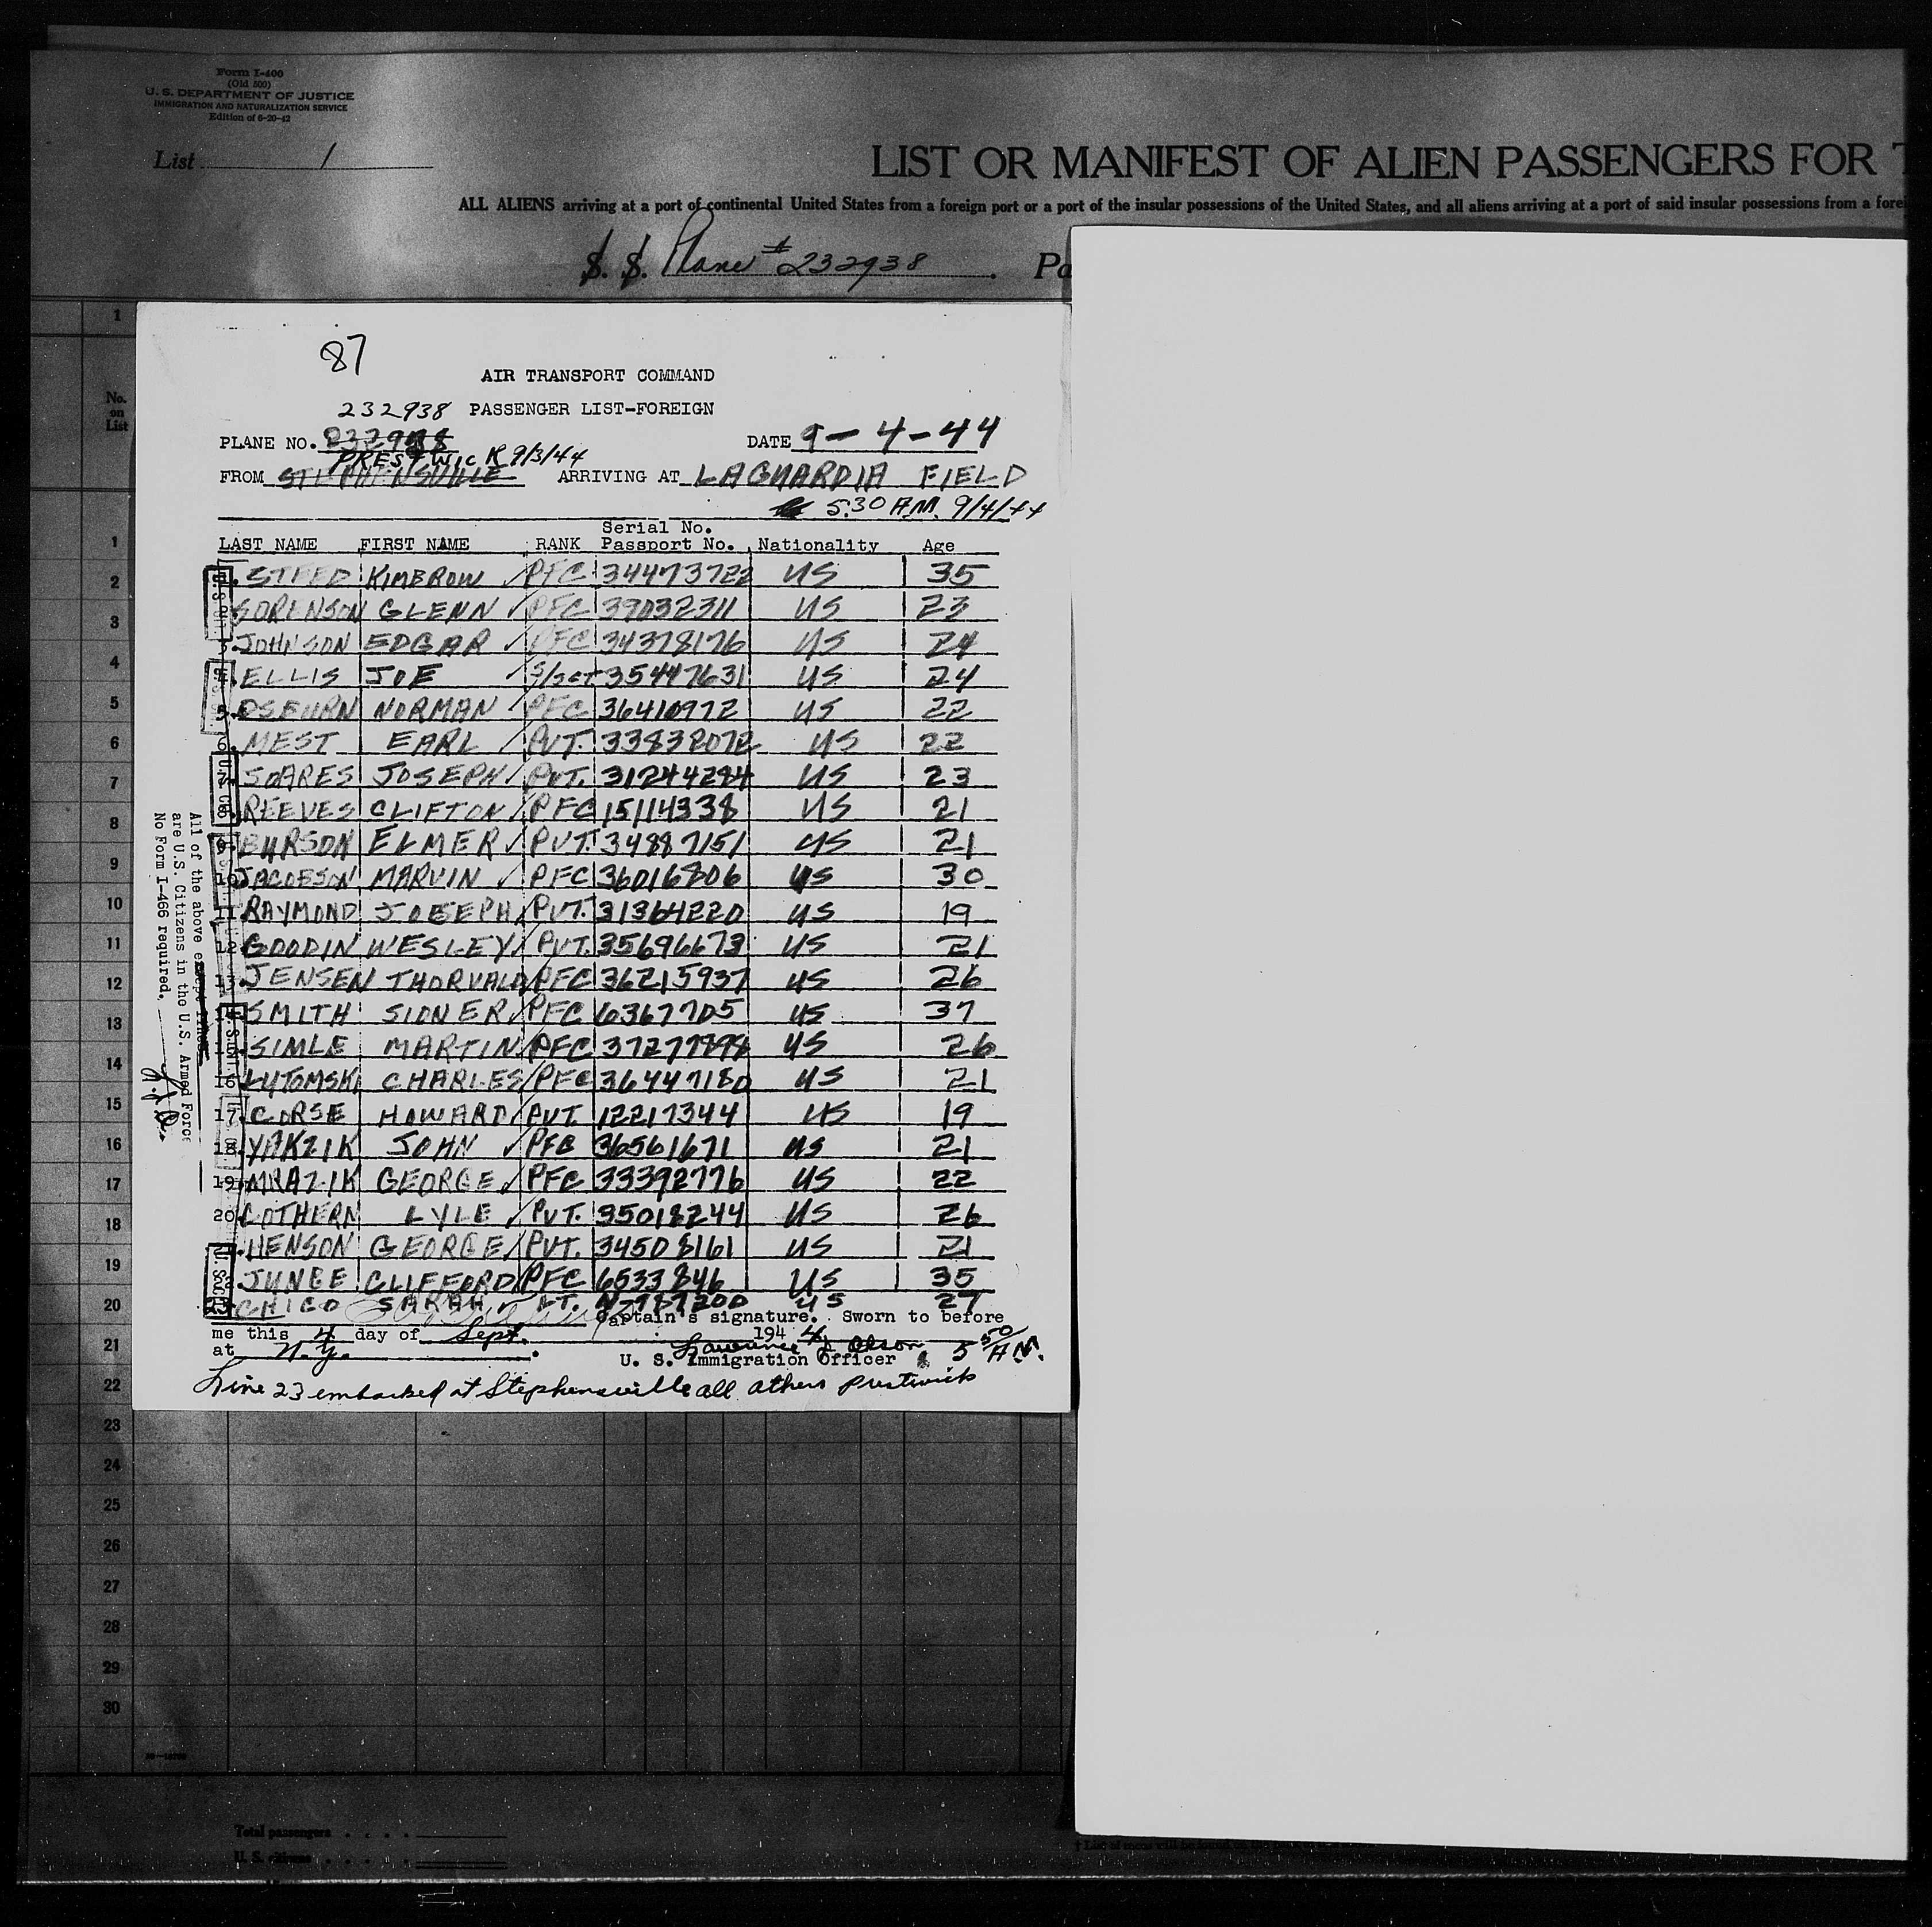 Form I-400
(Old 500)
U. S. DEPARTMENT OF JUSTICE
IMMIGRATION AND NATURALIZATION SERVICE
Edition of 6-20-42
List 1
LIST OR MANIFEST OF ALIEN PASSENGERS FOR T
ALL ALIENS arriving at a port of continental United States from a foreign port or a port of the insular possessions of the United States, and all aliens arriving at a port of said insular possessions from a forei
S. S. Plane #232938 . Pa
No. on List
87
AIR TRANSPORT COMMAND
232938 PASSENGER LIST-FOREIGN
PLANE NO. DATE 9-4-44
PRESTWICK 9/3/44
FROM STEPHENSVILLE ARRIVING AT LAGUARDIA FIELD
5.30 A.M. 9/4/44
LAST NAME FIRST NAME RANK Serial No. Passport No. Nationality Age
1. STEED KIMBROW PFC 34473722 US 35
SORENSON GLENN PFC 39032311 US 23
3. JOHNSON EDGAR PFC 34378176 US 24
4. ELLIS JOE S/SGT 35447631 US 24
5. OSBURN NORMAN PFC 36410972 US 22
6. MEST EARL PVT. 33832072 US 22
SOARES JOSEPH PVT. 31244284 US 23
REEVES CLIFTON PFC 15114338 US 21
9. BURSON ELMER PVT. 34887151 US 21
10. JACOBSON MARVIN PFC 36016806 US 30
11. RAYMOND JOESEPH PVT. 31364220 US 19
12. GOODIN WESLEY PVT. 35696673 US 21
13. JENSEN THORVALD PFC 36215937 US 26
SMITH SIONER PFC 6367705 US 37
SIMLE MARTIN PFC 37277898 US 26
16. LUTOMSKI CHARLES PFC 36447180 US 21
17. CORSE HOWARD PVT 12217344 US 19
18. YAKZIK JOHN PFC 36561671 US 21
19. MRAZIK GEORGE PFC 33392776 US 22
20. COTHERN LYLE PVT. 35018244 US 26
HENSON GEORGE PVT. 34508161 US 21
JUNEE CLIFFORD PFC 6533846 US 35
CHICO SARAH LT. N-787200 US 27
Captain's signature. Sworn to before
me this 4 day of Sept. 194 4
at N.Y. Lawrence J Olson 5 50 A.M.
U. S. Immigration Officer
Line 23 embarked at Stephensville all others Prestwick
All of the above except lines
are U.S. Citizens in the U.S. Armed Force
No Form I-466 required.
1
1
2
3
4
5
6
7
8
9
10
11
12
13
14
15
16
17
18
19
20
21
22
23
24
25
26
27
28
29
30
Total passengers . . . .
U. S. citizens . . . . .